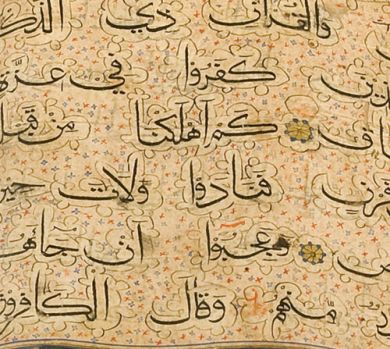 والقرآن ذي الذك
ذين كفروا في عزة
اق كم أهلكنا من قبل
قرن فنادوا ولات حين
ص وعجبوا أن جاءهم
منهم وقال الكافرون